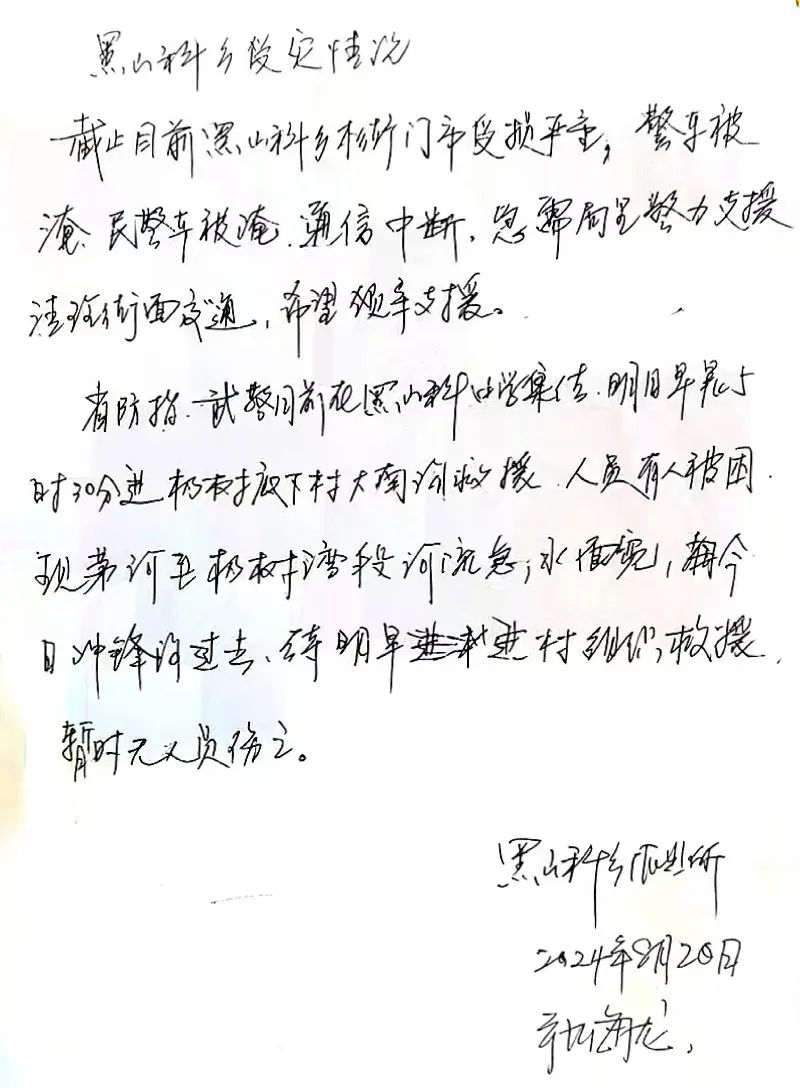 黑山科乡受灾情况
截止目前黑山科乡村街门市受损严重，警车被
淹、民警车被淹、通信中断，急需局里警力支援
清理街面交通，希望领导支援。
省防指、武警目前在黑山科中学集结，明日早晨5
时30分进杨树底下村大南沟救援，人员有人被困，
现 河至杨树湾段河流急，水面宽，
日冲锋 过去、待明早进村组织救援，
暂时无人员伤亡。
黑山科乡派出所
2024年8月20日
海龙